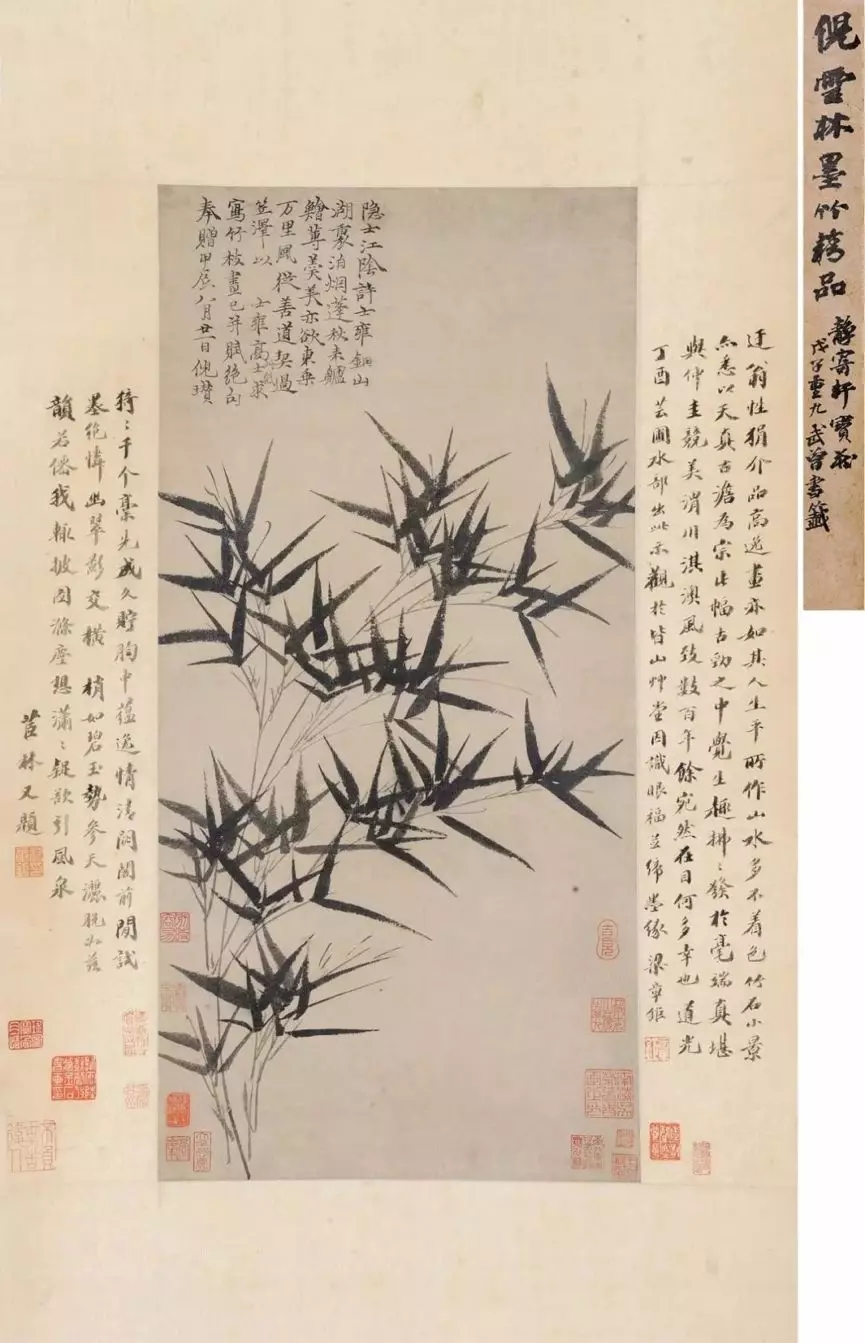 倪雲林墨竹精品
靜寄軒寶藏
戊子重九武曾書籤
迂翁性狷介品高逸畫亦如其人生平所作山水多不着色竹石小景
亦悉以天真古澹為宗此幅古勁之中覺生趣拂〻發於毫端真堪
與仲圭競美渭川淇澳風致數百年餘宛然在目何多幸也道光
丁酉芸圃水部出此示觀於皆山艸堂因識眼福並締墨緣梁章鉅
隐士江陰許士雍銅山
湖裏泊烟蓬秋来鱸
鱠蓴羹美亦欲東乗
万里風從善道契過
笠澤以士雍高士求
寫竹枝畫已并賦絕句
奉贈甲辰八月廿一日倪瓚
猗〻千个稾先成久貯胸中蘊逸情清閟閣前閒試
墨絕憐幽翠影交橫 梢如碧玉勢參天灑脫如茲
韻若僊我輒披圖滌塵想瀟〻疑欲引風泉
茝林又題